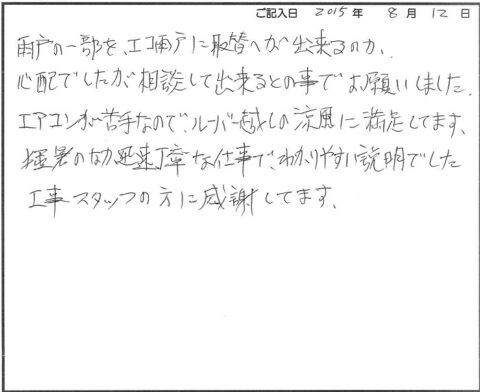 ご記入日 2015年 8月 12日
雨戸の一部を、エコ雨戸に取替へが出来るのか、
心配でしたが相談して出来るとの事でお願いしました。
エアコンが苦手なので、ルーバー越しの涼風に満足してます。
猛暑の中迅速丁寧な仕事で、わかりやすい説明でした
工事スタッフの方に感謝してます。